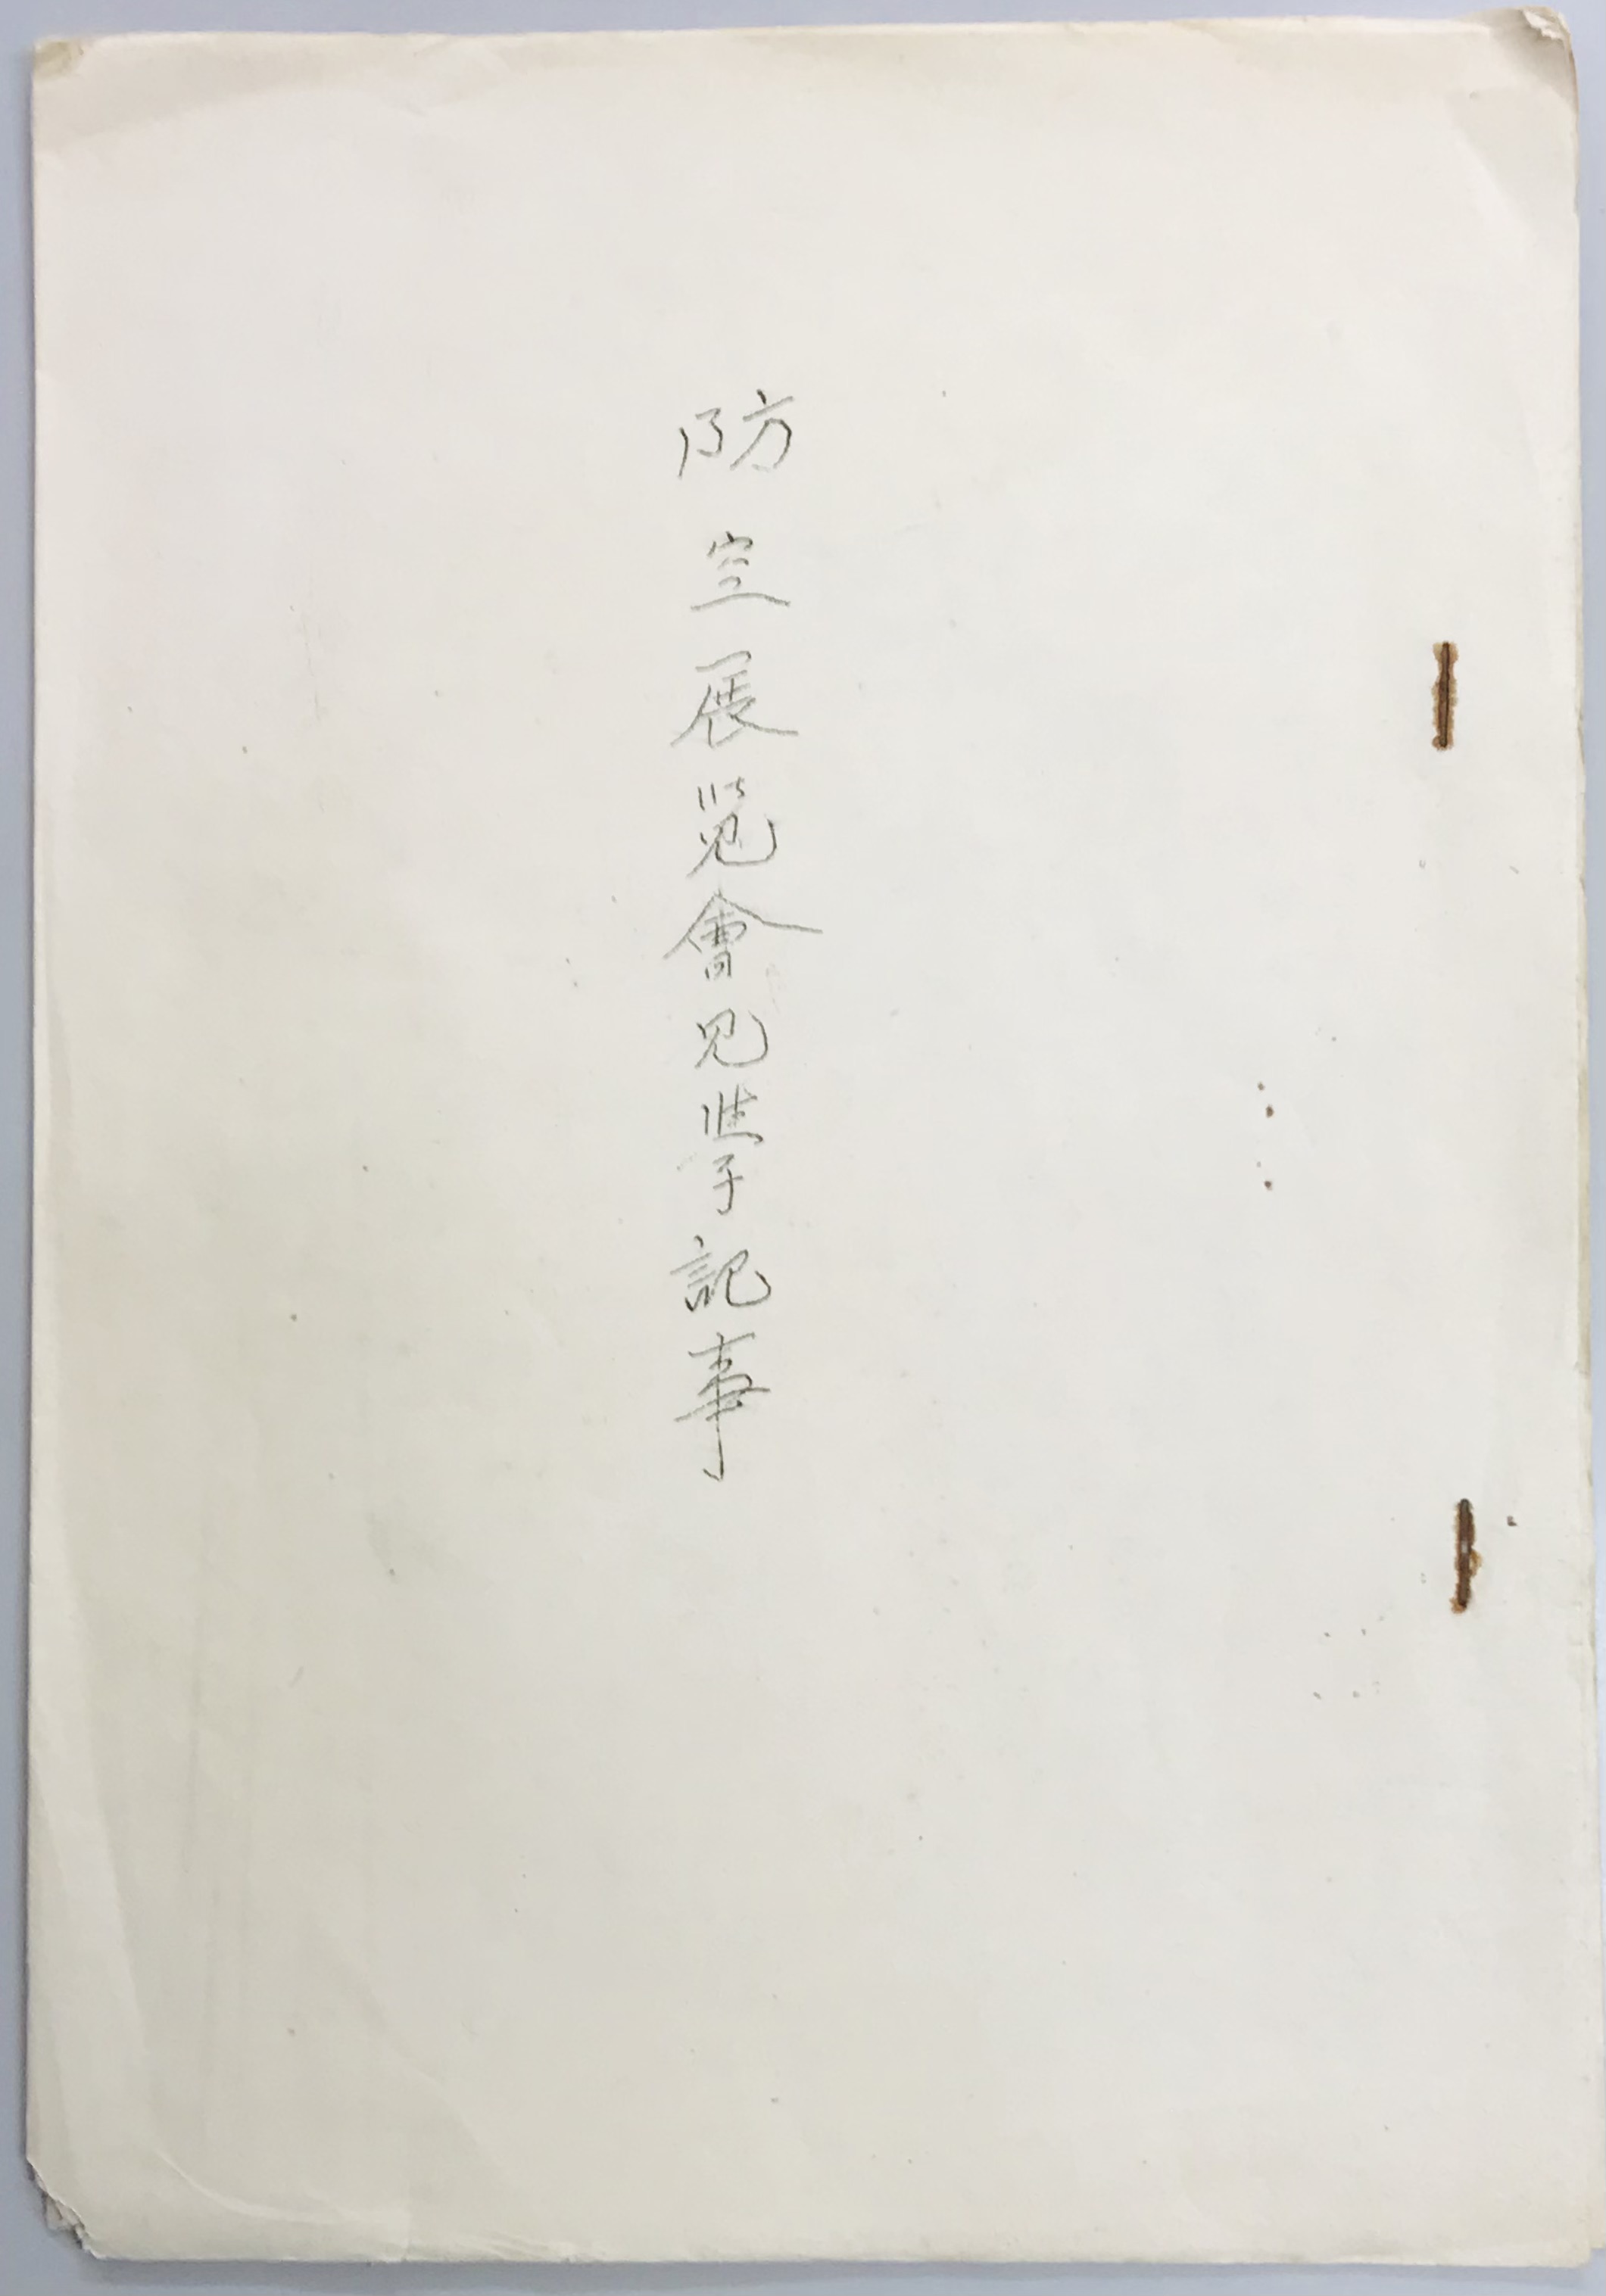 防空展览會見学記事